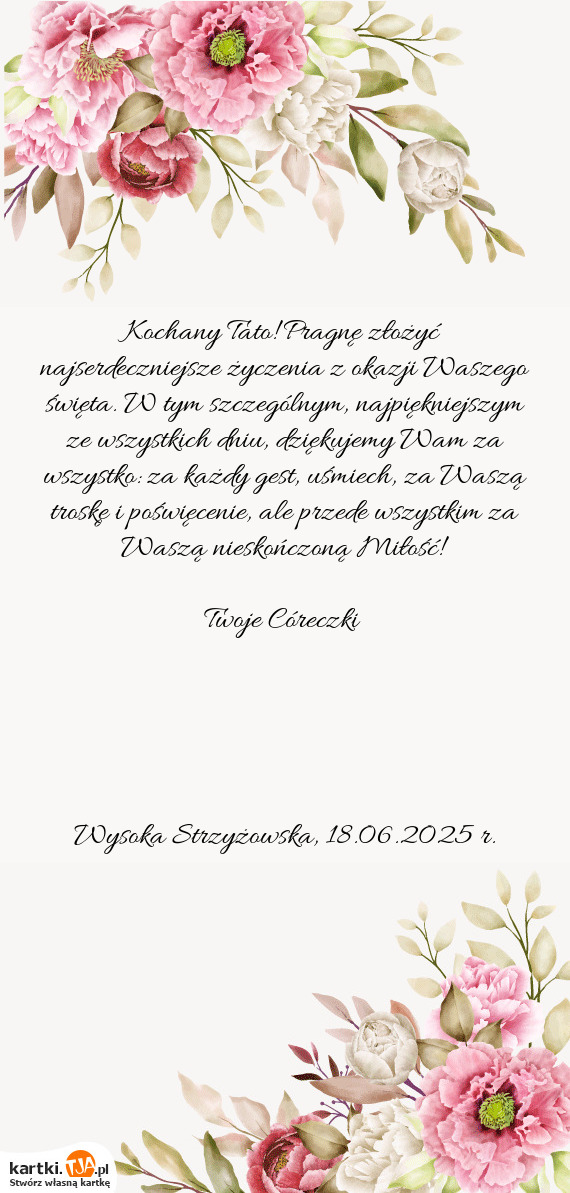 Kochany Tato! Pragnę złożyć
najserdeczniejsze życzenia z okazji Waszego
święta. W tym szczególnym, najpiękniejszym
ze wszystkich dniu, dziękujemy Wam za
wszystko: za każdy gest, uśmiech, za Waszą
troskę i poświęcenie, ale przede wszystkim za
Waszą nieskończoną Miłość!
Twoje Córeczki
Wysoka Strzyżowska, 18.06.2025 r.
kartki.TJA.pl
Stwórz własną kartkę